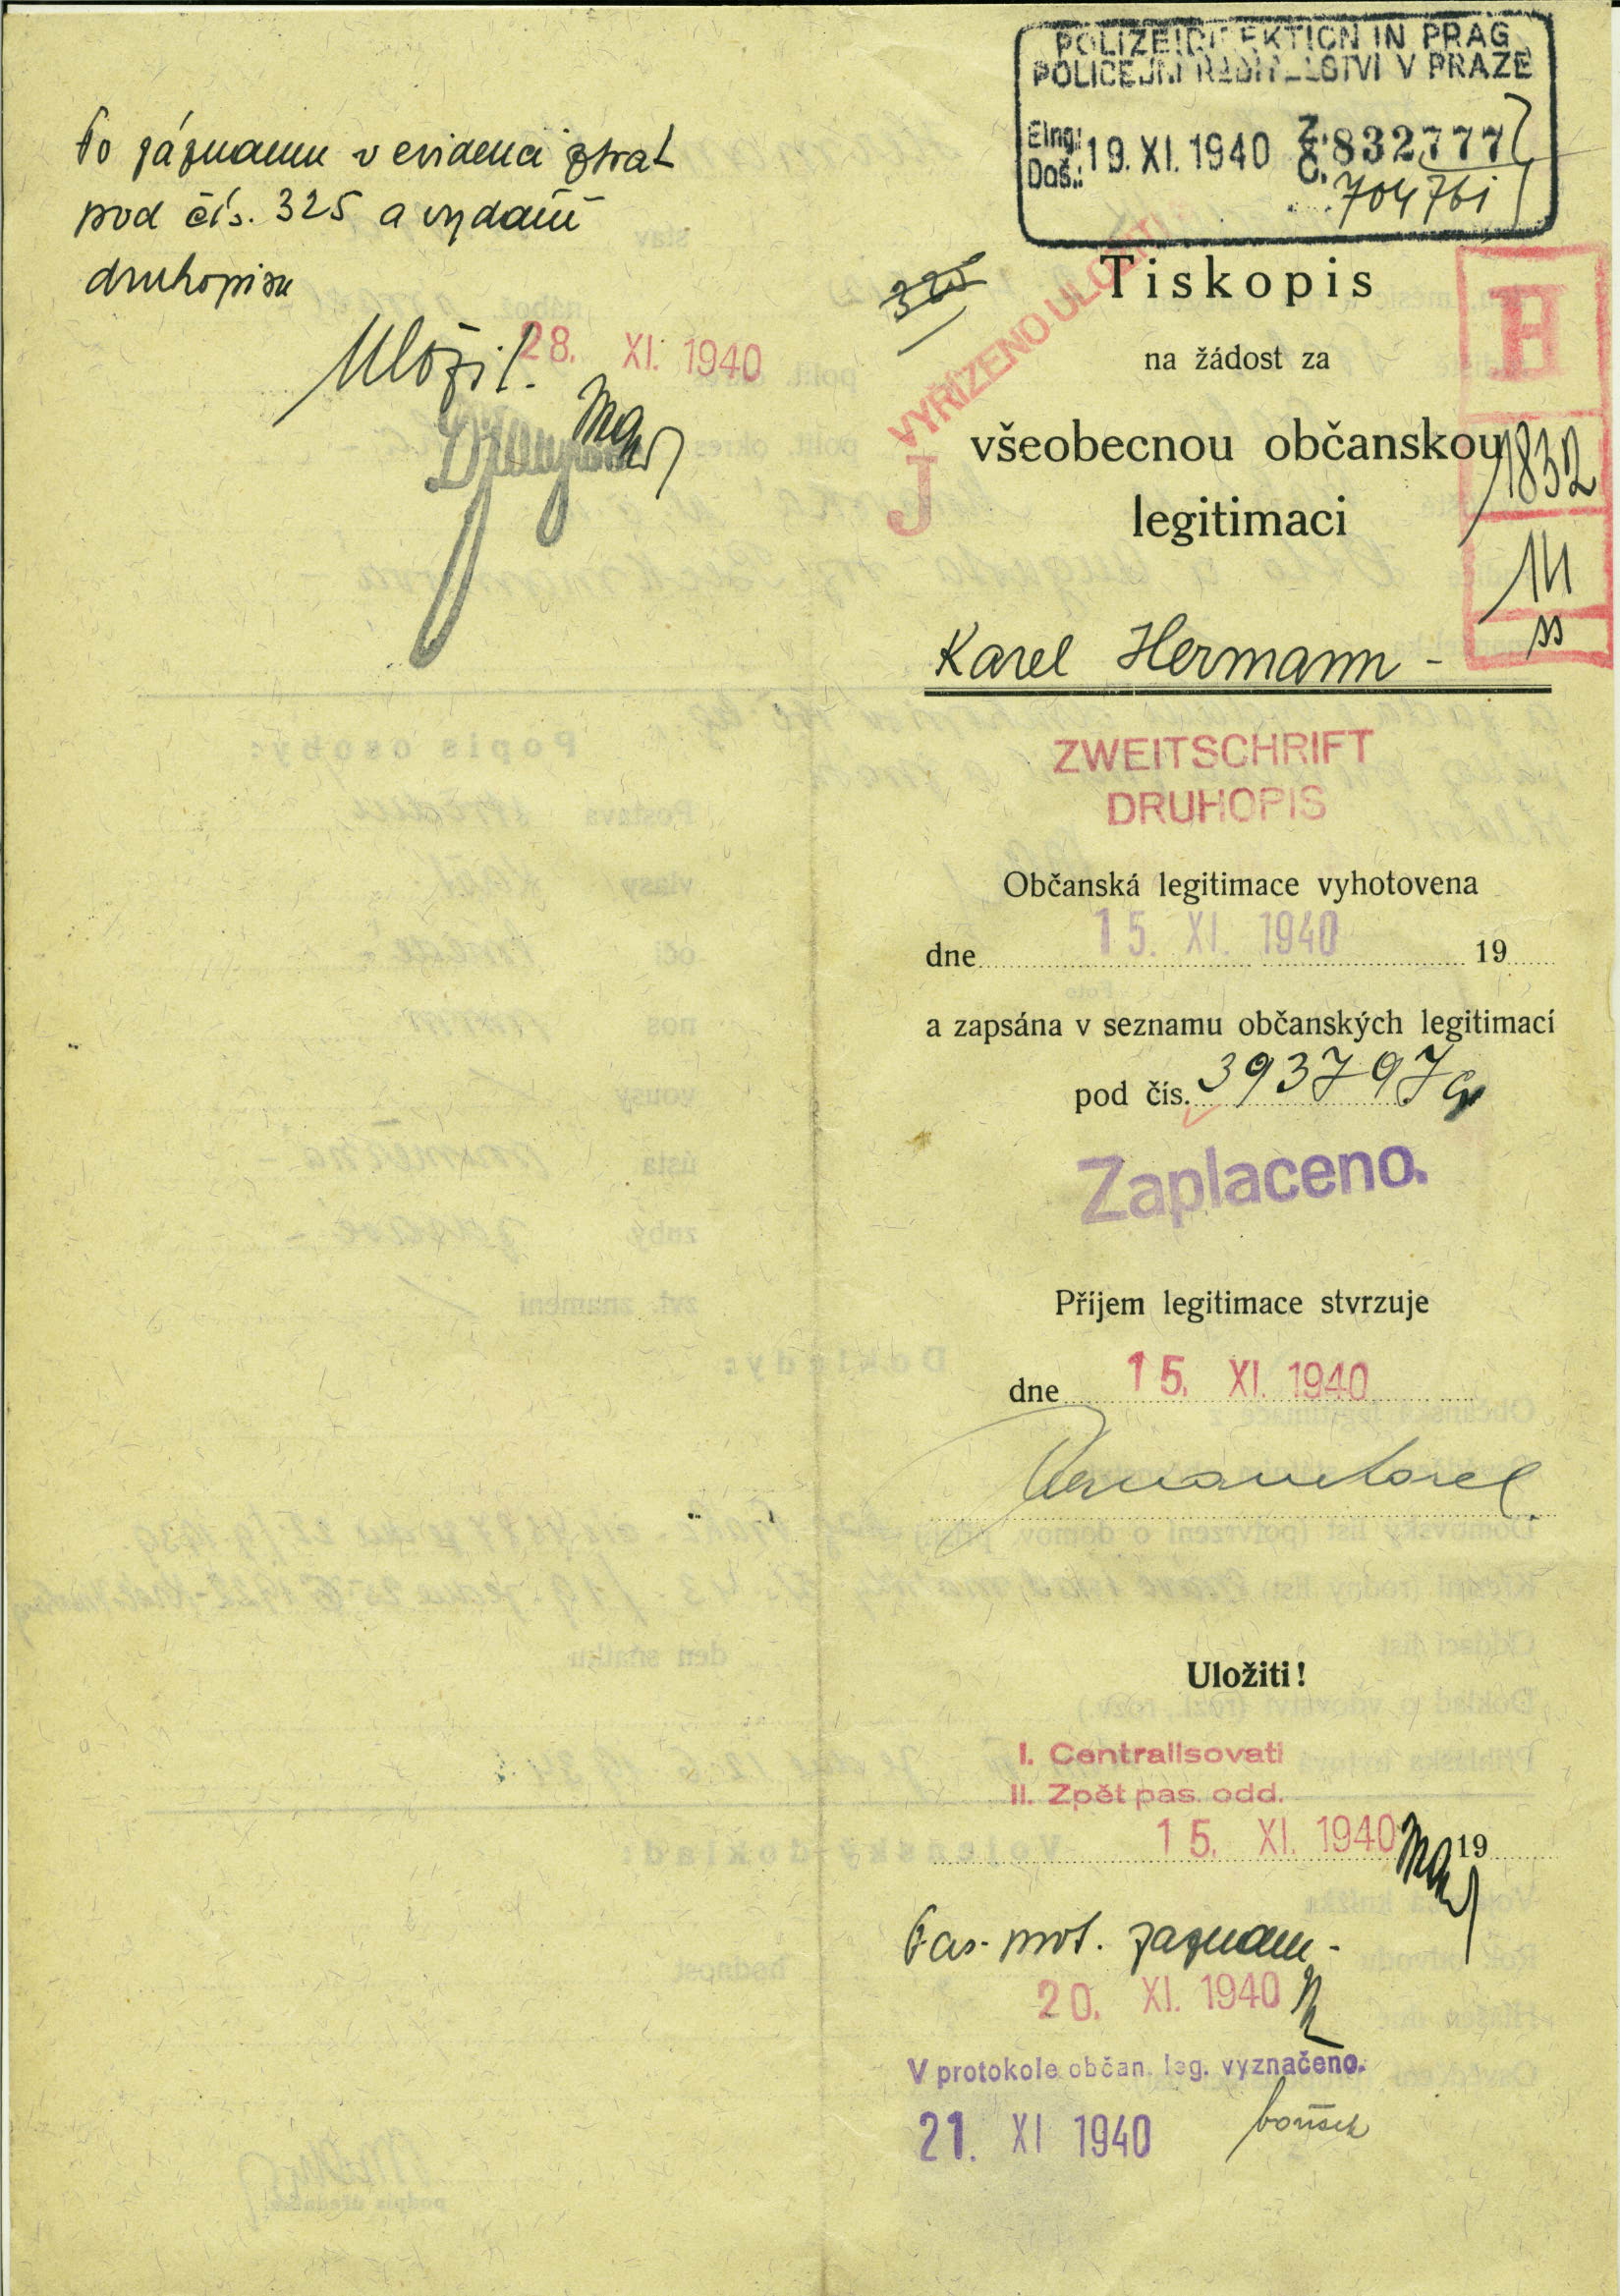 POLIZEIDIREKTION IN PRAG
POLICEJNÍ ŘEDITELSTVÍ V PRAZE
Eing.: 19. XI. 1940 Z. 832777
Doš.: Č. 704761
Po záznamu v evidenci ztrát
pod čís. 325 a vydání
druhopisu
Uložit.
28. XI. 1940
325
VYŘÍZENO ULOŽITI
J
H
1832
14
Tiskopis
na žádost za
všeobecnou občanskou
legitimaci
Karel Hermann -
ZWEITSCHRIFT
DRUHOPIS
Občanská legitimace vyhotovena
dne 15. XI. 1940 19
a zapsána v seznamu občanských legitimací
pod čís. 393797
Zaplaceno.
Příjem legitimace stvrzuje
dne 15. XI. 1940
Hermann Karel
Uložiti!
I. Centralisovati
II. Zpět pas. odd.
15. XI. 1940 19
Pas. prot. zaznam. -
20. XI. 1940
V protokole občan. leg. vyznačeno.
21. XI 1940